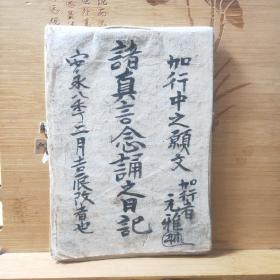 加行中之願文
加行者
元雅
諸真言念誦之日記
安永八年二月吉辰改者也